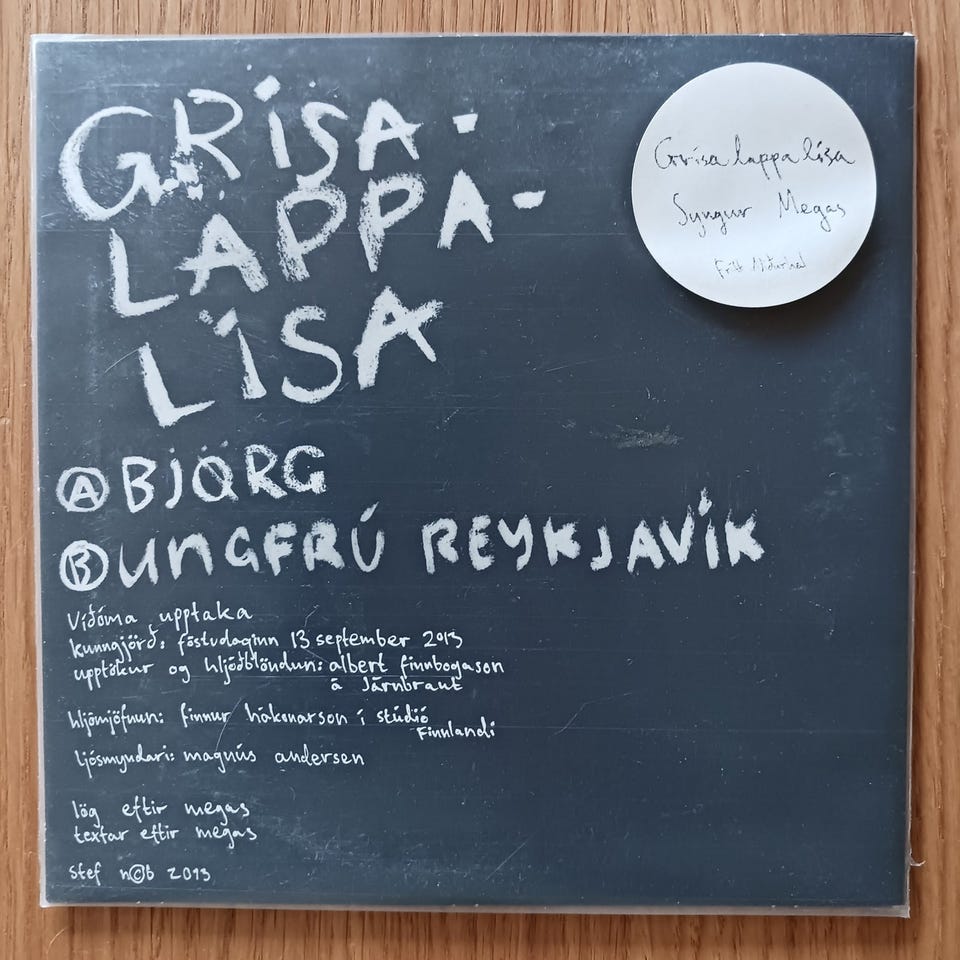 GRÍSA-
LAPPA-
LÍSA
Ⓐ BJÖRG
Ⓑ UNGFRÚ REYKJAVÍK
Víðóma upptaka
kunngjörð: föstudaginn 13 september 2013
upptökur og hljóðblöndun: albert finnbogason
á Járnbraut
hljómjöfnun: finnur hákonarson í stúdíó
Finnlandi
ljósmyndari: magnús andersen
lög eftir megas
textar eftir megas
Stef n©b 2013
Grísalappalísa
Syngur Megas
Frítt